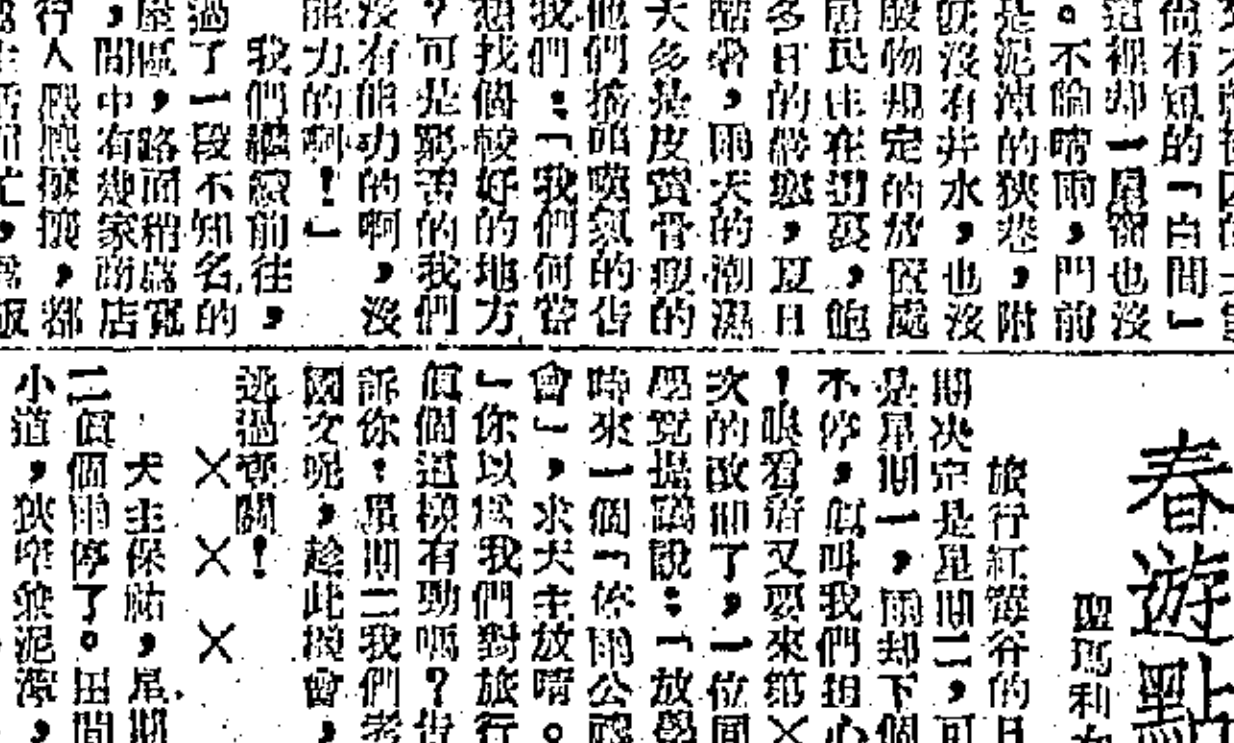 尚有短的「白間」
這裡却一層窗也沒
。不論晴雨，門前
是泥濘的狹巷，附
就沒有井水，也沒
服物規定的放置處
居民住在裏，飽
日的，夏日
，雨天的潮濕
大多是皮黃骨瘦的
他們嘆氣的告
我們：「我們何嘗
想找個較好的地方
？可是窮苦的我們
沒有能力的啊，沒
能力的啊！」
我們繼續前往，
過了一段不知名的
屋區，路面稍爲寬
，間中有幾家商店
行人熙熙攘攘，都
春遊點
聖瑪利
旅行紅莓谷的日
期决定是星期二，可
是星期一，雨却下個
不停，怎叫我們担心
！眼看着又要來第×
次的改期了，一位同
學竟提議說：「放學
時來一個「停雨公禱
會」，求天主放晴。
」你以爲我們對旅行
真個這樣有勁嗎？告
訴你：星期二我們考
國文呢，趁此機會，
逃過考關！
×××
天主保祐，星期
二真個雨停了。田間
小道，狹窄兼泥濘，